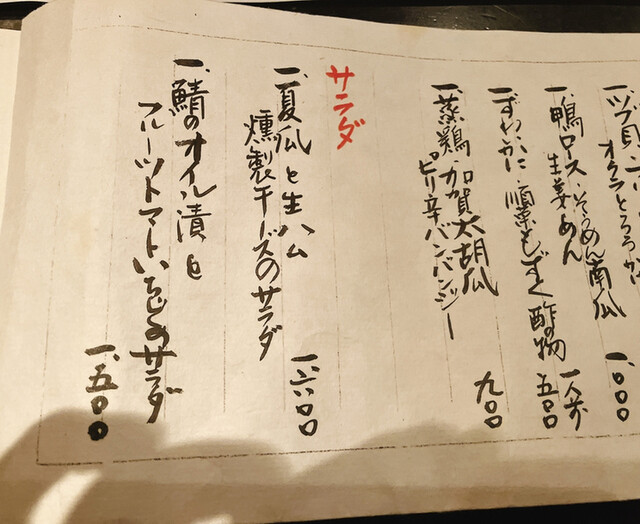 一、ツブ貝
オクラとろろ
一、鴨ロース・そうめん南瓜
生姜あん
一、〇〇〇
一、ずわいかに・順菜もずく酢の物
一人分
五〇〇
一、蒸鶏・加賀太胡瓜
ピリ辛バンバンジー
九〇〇
サラダ
一、夏瓜と生ハム
燻製チーズのサラダ
一、六〇〇
一、鯖のオイル漬と
フルーツトマトいちじくのサラダ
一、五〇〇